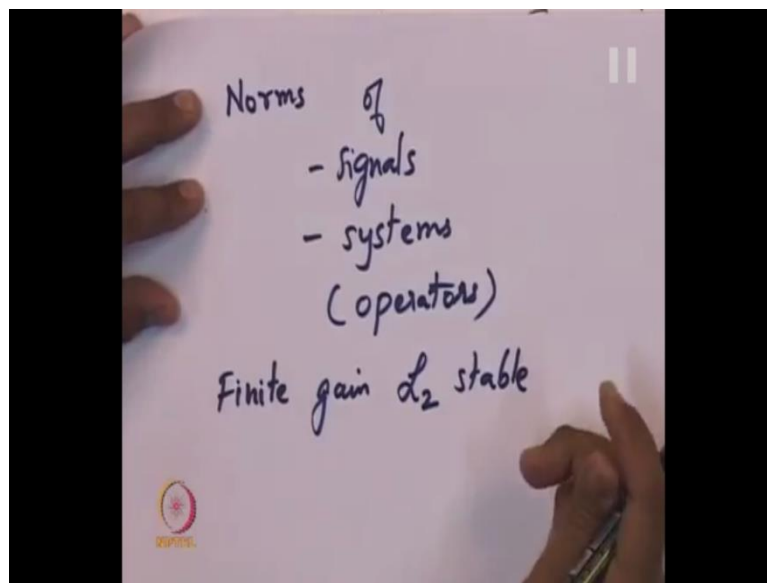 Norms of
- signals
- systems
(operators)
Finite gain L₂ stable
NPTEL